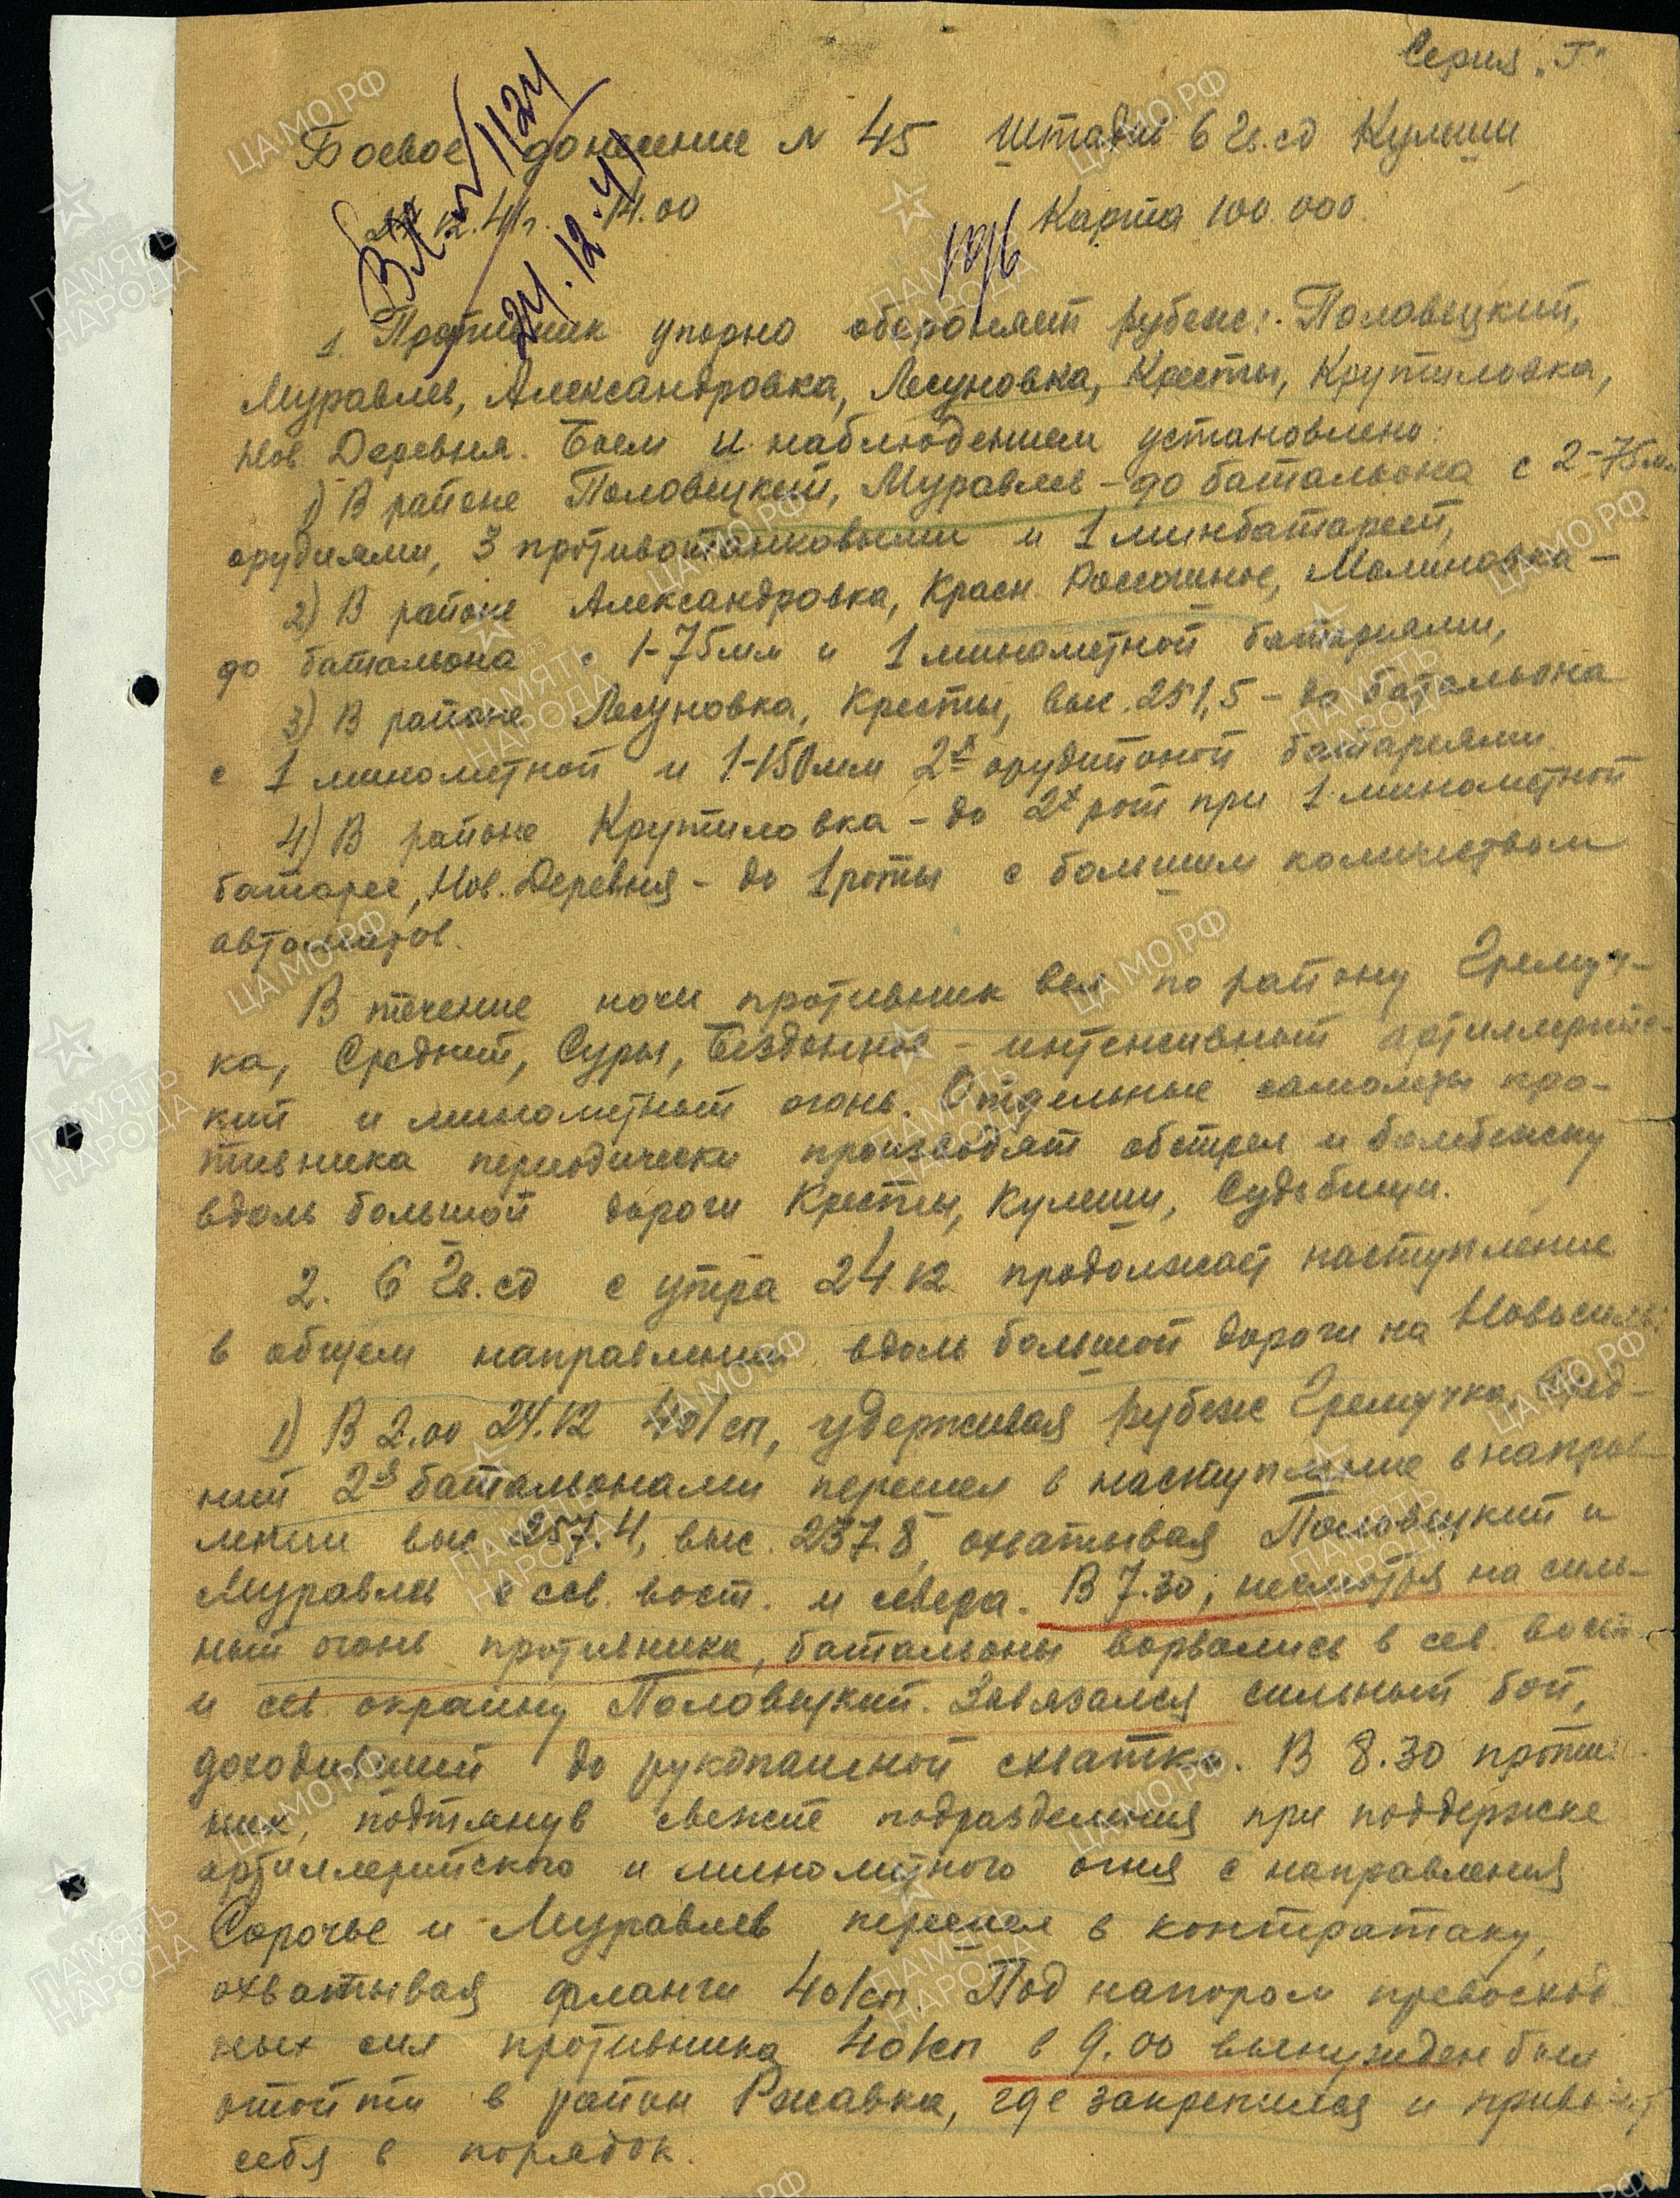 Серия „Г"
Боевое донесение № 45 Штадив 6 Гв. сд Кулеши
24.12.41г. 14.00 Карта 100.000.
Вх № 1124
24.12.41
196
1. Противник упорно обороняет рубеж:- Половецкий,
Муравлев, Александровка, Лесуновка, Кресты, Крутиловка,
Нов Деревня. Боем и наблюдением установлено:
1) В районе Половецкий, Муравлев – до батальона с 2-75мм
орудиями, 3 противотанковыми и 1 минбатареей,
2) В районе Александровка, Красн. Роскошное, Малиновка –
до батальона с 1-75мм и 1 минометной батареями,
3) В районе Лесуновка, Кресты, выс. 251,5 – до батальона
с 1 минометной и 1-150мм 2х орудийной батареями.
4) В районе Крутиловка – до 2х рот при 1 минометной
батарее, Нов. Деревня – до 1 роты с большим количеством
автоматов.
В течение ночи противник вел по району Гремуч-
ка, Средний, Суры, Бездонное – интенсивный артиллерийс-
кий и минометный огонь. Отдельные самолеты про-
тивника периодически производят обстрел и бомбежку
вдоль большой дороги Кресты, Кулеши, Судьбищи.
2. 6 Гв. сд с утра 24.12 продолжает наступление
в общем направлении вдоль большой дороги на Новосиль.
1) В 2.00 24.12 401сп, удерживая рубеж Гремучка, Сред-
ний 2я батальонами перешел в наступление в направ-
лении выс. 257.4, выс. 237.8, охватывая Половецкий и
Муравлев с сев. вост. и севера. В 7.30, несмотря на силь-
ный огонь противника, батальоны ворвались в сев. вост.
и сев. окраину Половецкий. Завязался сильный бой,
доходивший до рукопашной схватки. В 8.30 против
ник, подтянув свежие подразделения при поддержке
артиллерийского и минометного огня с направления
Сорочье и Муравлев перешел в контратаку,
охватывая фланги 401сп. Под напором превосход
ных сил противника 401сп в 9.00 вынужден был
отойти в район Ржавка, где закрепился и приводит
себя в порядок.